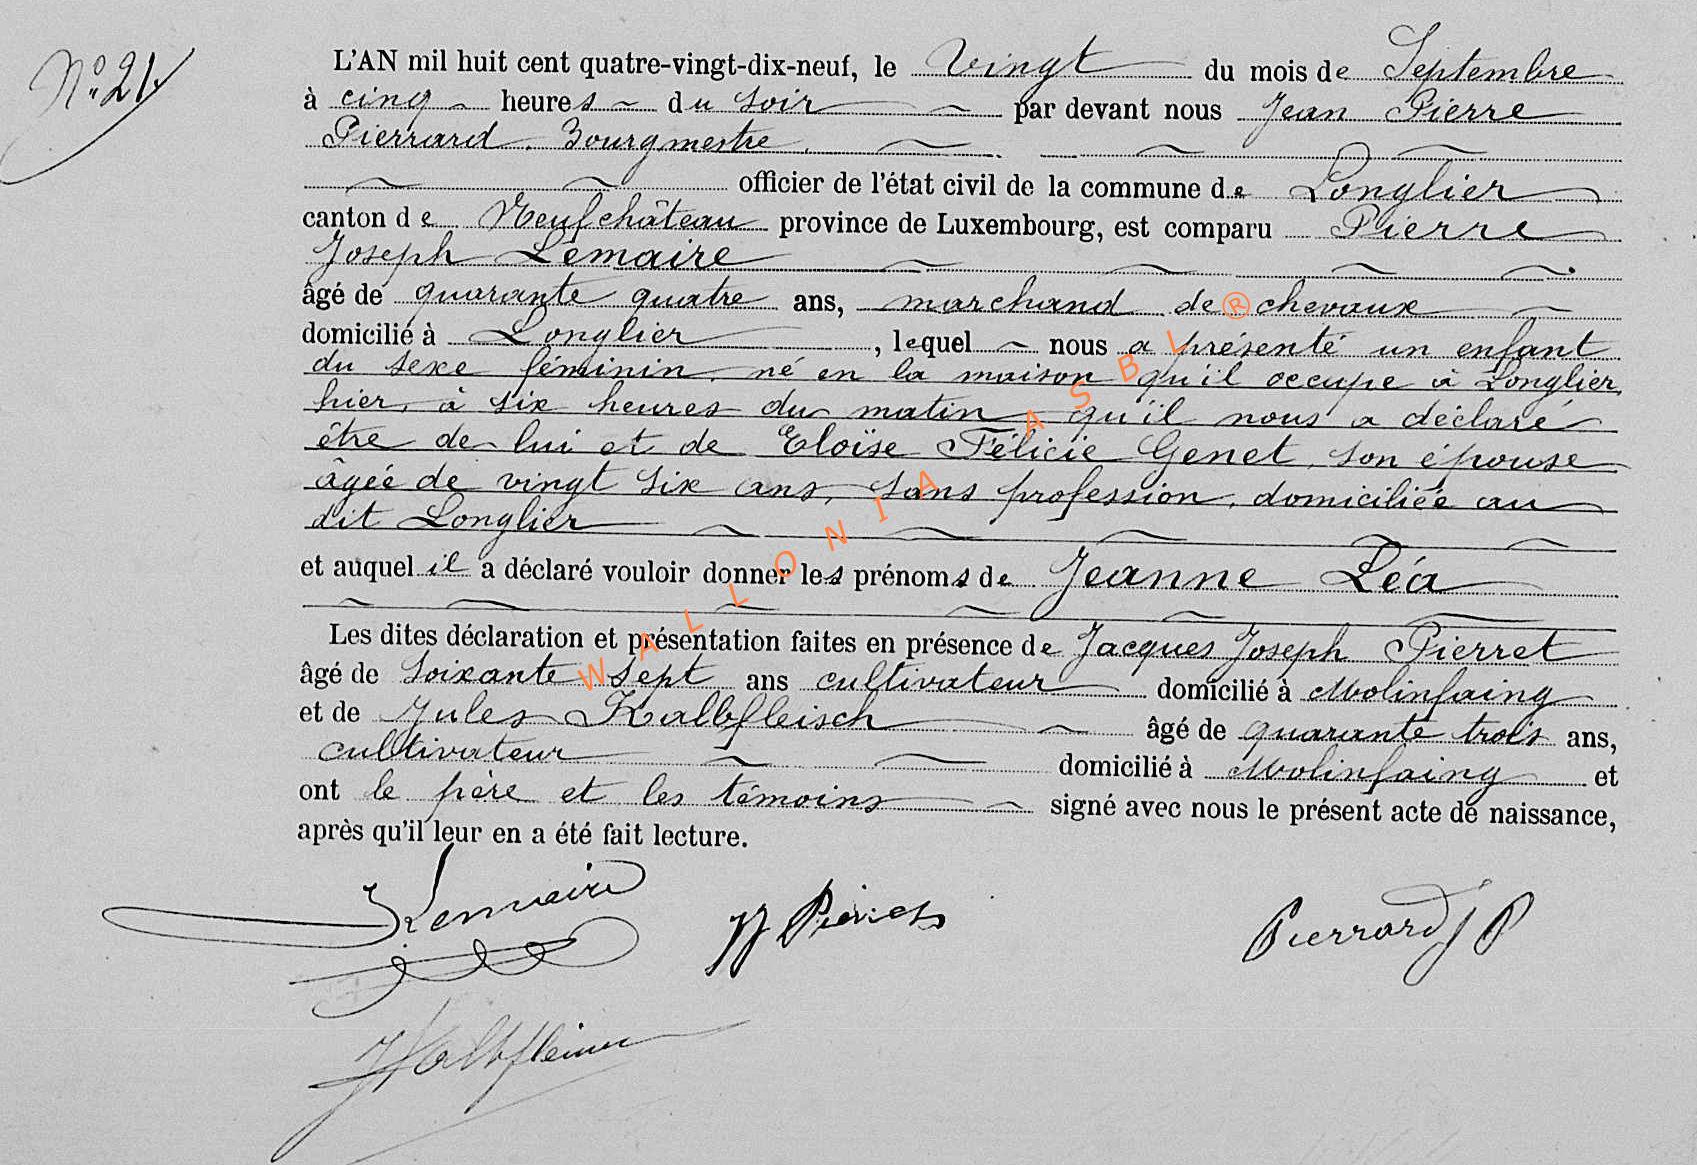 N° 21
L'AN mil huit cent quatre-vingt-dix-neuf, le Vingt du mois de Septembre
à cinq heures du soir par devant nous Jean Pierre
Pierrard, Bourgmestre,
officier de l'état civil de la commune de Longlier
canton de Neufchâteau province de Luxembourg, est comparu Pierre
Joseph Lemaire
âgé de quarante quatre ans, marchand de chevaux
domicilié à Longlier, lequel nous a présenté un enfant
du sexe féminin, né en la maison qu'il occupe à Longlier,
hier, à six heures du matin, qu'il nous a déclaré
être de lui et de Eloïse Félicie Genet, son épouse
âgée de vingt six ans, sans profession, domiciliée au
dit Longlier
et auquel il a déclaré vouloir donner les prénoms de Jeanne Léa
Les dites déclaration et présentation faites en présence de Jacques Joseph Pierret
âgé de soixante sept ans cultivateur domicilié à Molinfaing
et de Jules Kalbfleisch âgé de quarante trois ans,
cultivateur domicilié à Molinfaing et
ont le père et les témoins signé avec nous le présent acte de naissance,
après qu'il leur en a été fait lecture.
Lemaire JJ Pierret Pierrard J P
J Kalbfleisch
WALLONIA ASBL ®